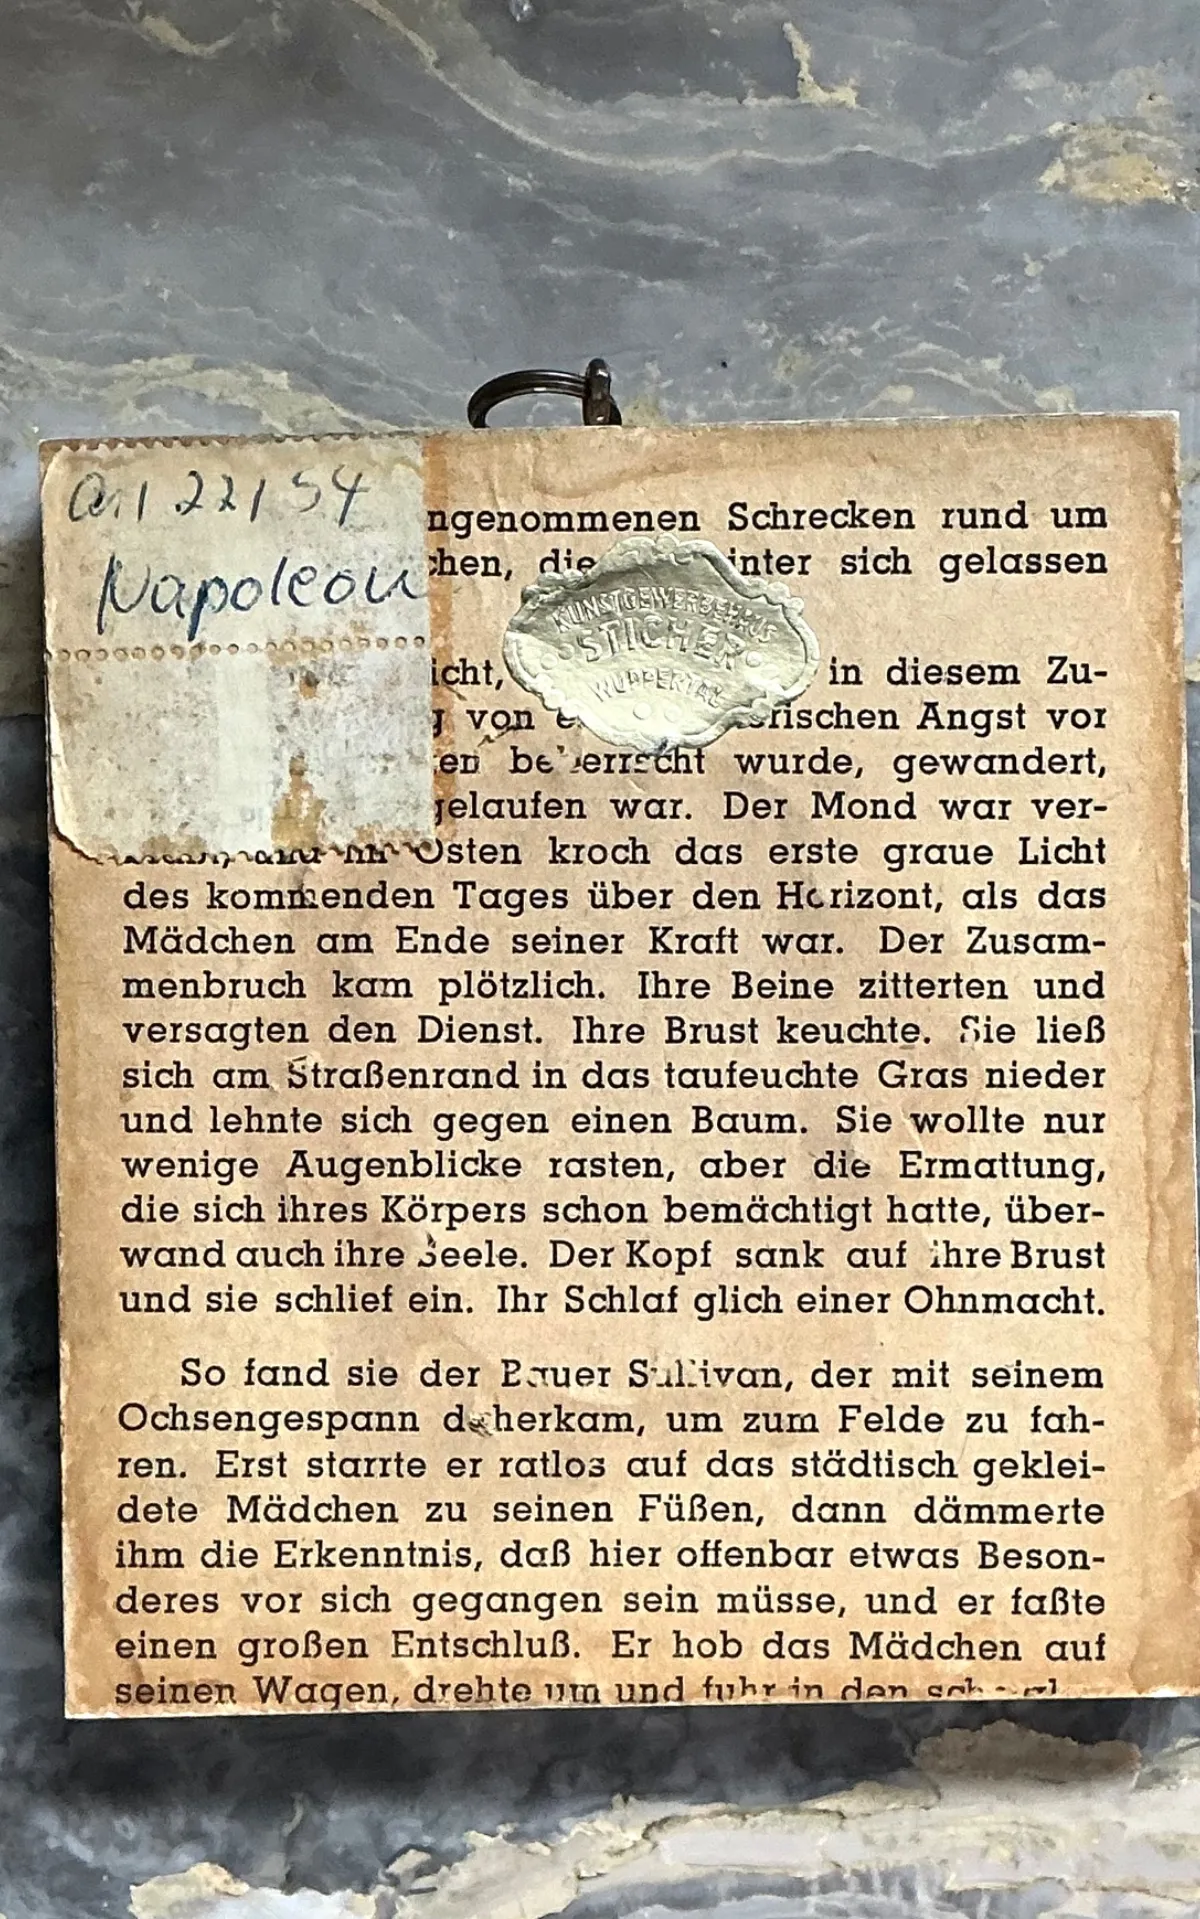 22/54
Napoleon
ngenommenen Schrecken rund um
chen, die inter sich gelassen
KUNSTGEWERBEHAUS
STICHER
WUPPERTAL
icht, in diesem Zu-
g von rischen Angst vor
en beherrscht wurde, gewandert,
gelaufen war. Der Mond war ver-
Osten kroch das erste graue Licht
des kommenden Tages über den Horizont, als das
Mädchen am Ende seiner Kraft war. Der Zusam-
menbruch kam plötzlich. Ihre Beine zitterten und
versagten den Dienst. Ihre Brust keuchte. Sie ließ
sich am Straßenrand in das taufeuchte Gras nieder
und lehnte sich gegen einen Baum. Sie wollte nur
wenige Augenblicke rasten, aber die Ermattung,
die sich ihres Körpers schon bemächtigt hatte, über-
wand auch ihre Seele. Der Kopf sank auf ihre Brust
und sie schlief ein. Ihr Schlaf glich einer Ohnmacht.
So fand sie der Bauer Sullivan, der mit seinem
Ochsengespann daherkam, um zum Felde zu fah-
ren. Erst starrte er ratlos auf das städtisch geklei-
dete Mädchen zu seinen Füßen, dann dämmerte
ihm die Erkenntnis, daß hier offenbar etwas Beson-
deres vor sich gegangen sein müsse, und er faßte
einen großen Entschluß. Er hob das Mädchen auf
seinen Wagen, drehte um und fuhr in den